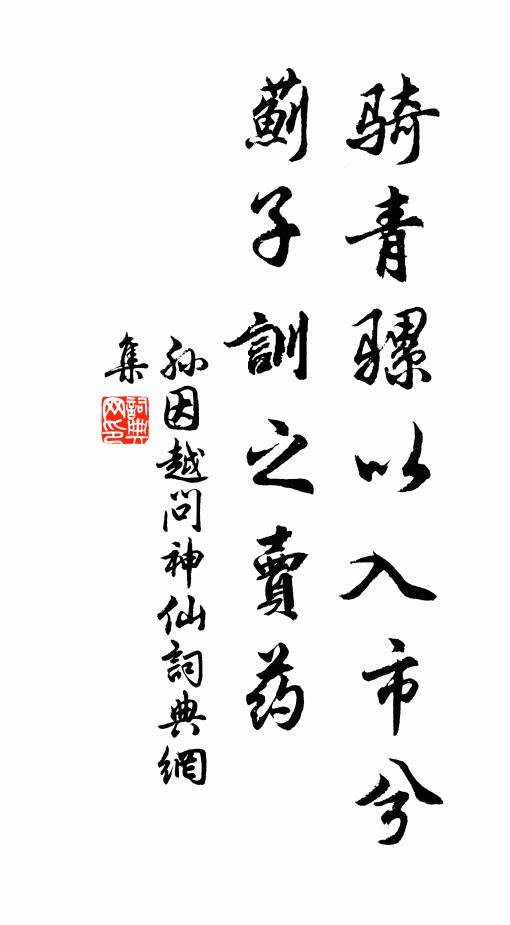 骑青骡以入市兮
蓟子訓之賣药
孙因越问神仙詞典網
集
詞典
网印